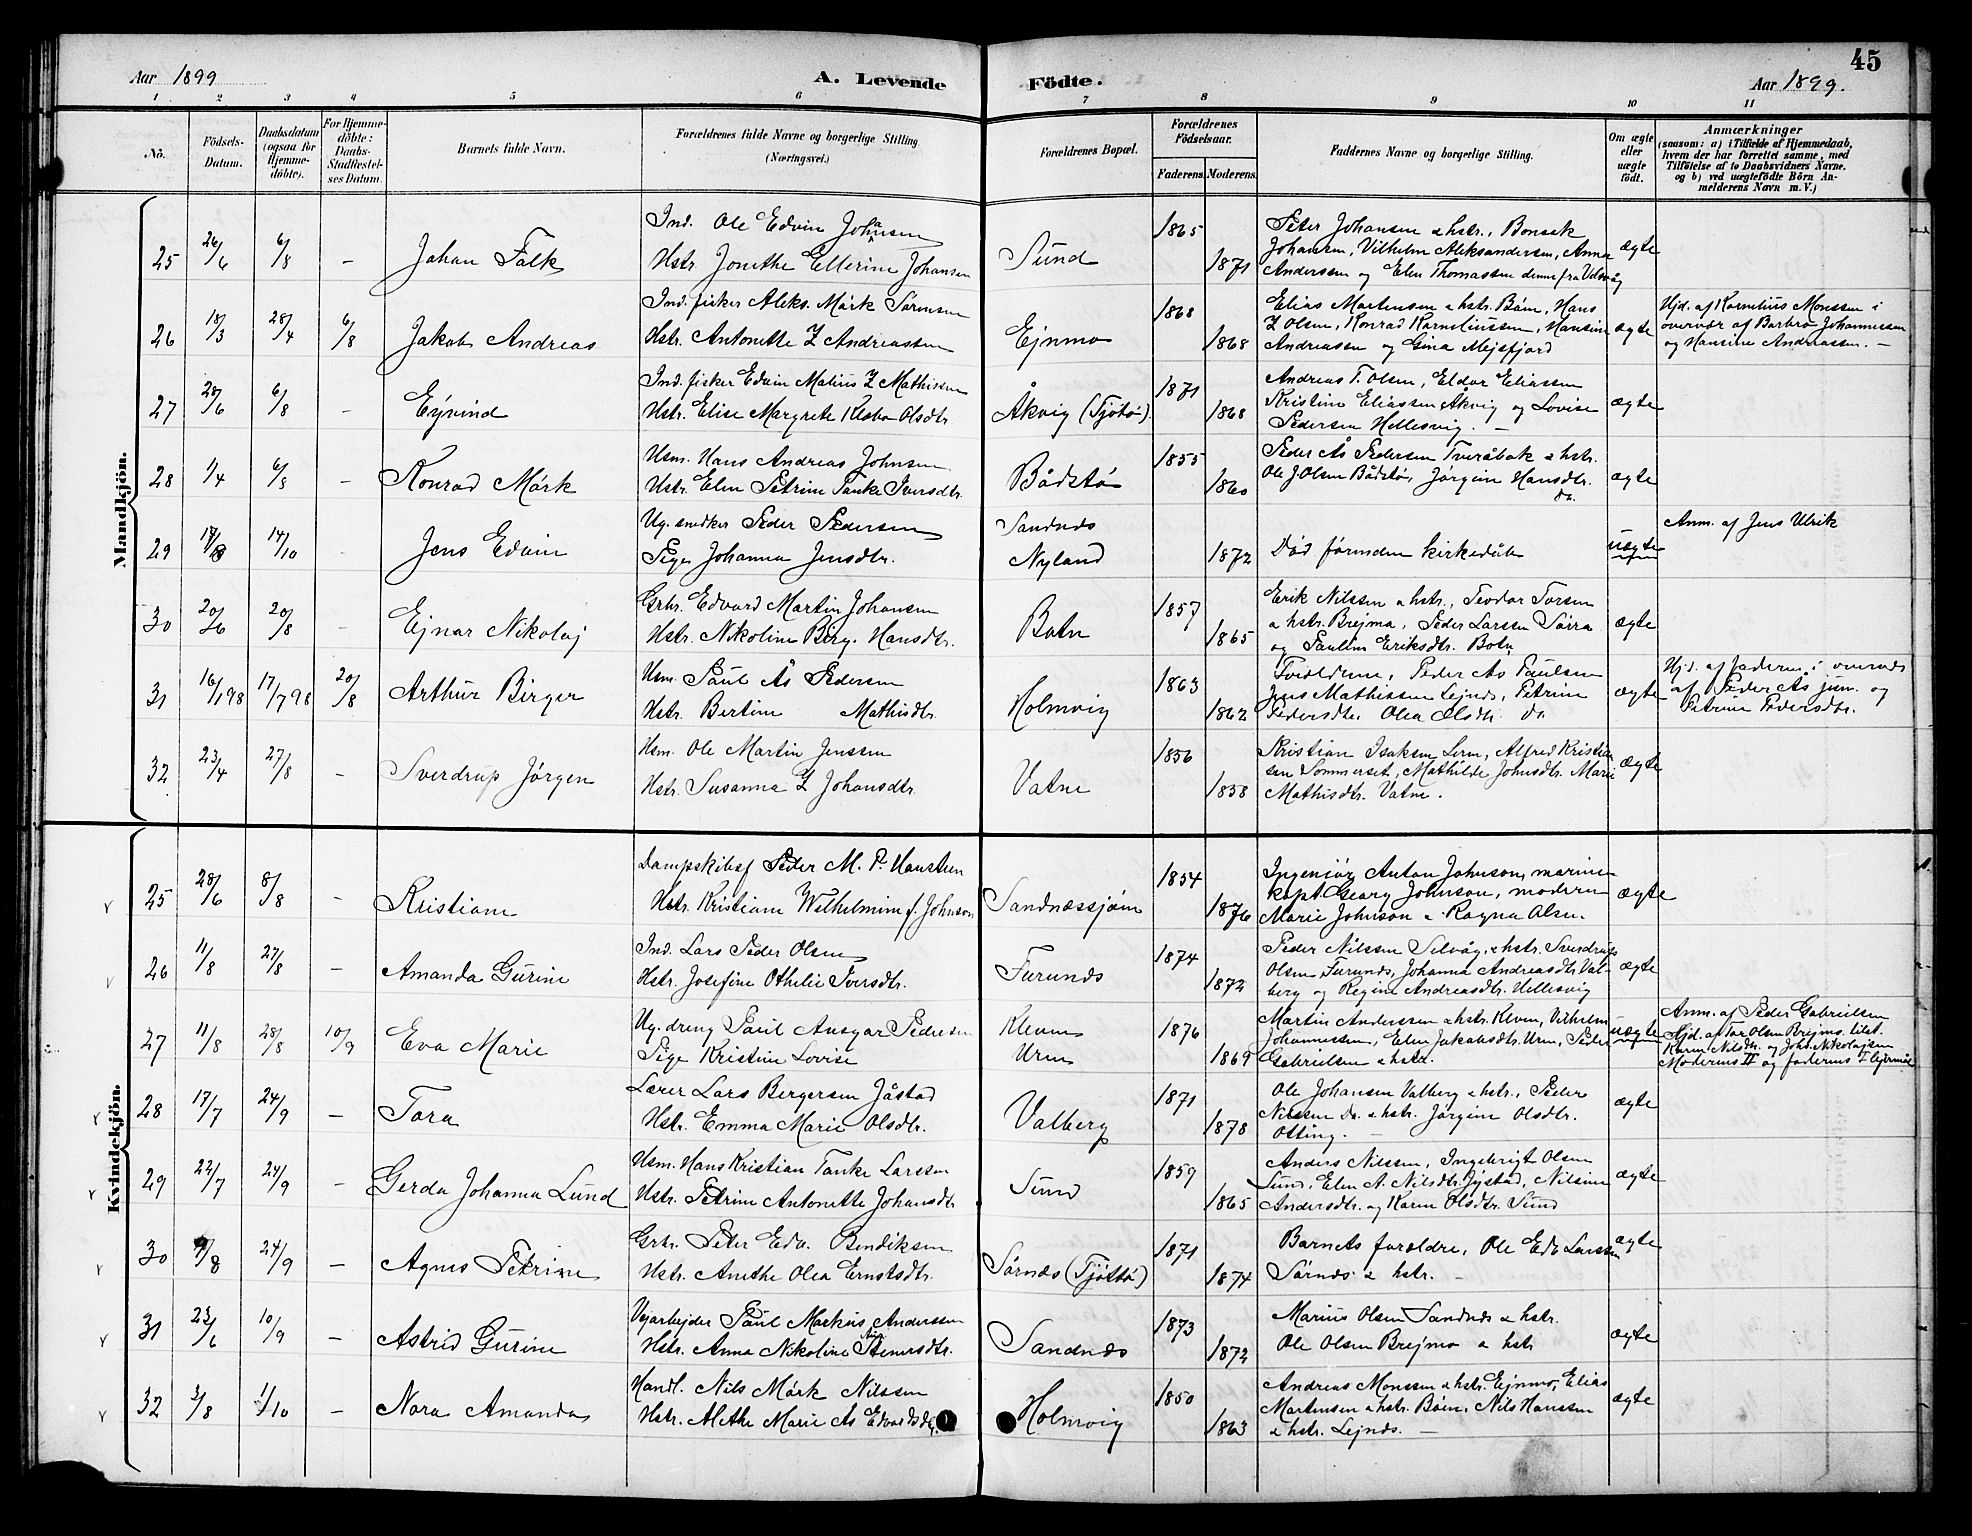 45
Aar 1899
A. Levende
Födte.
Aar 1899.
1 2 3 4 5 6 7 8 9 10 11
No.
Födsels-
Datum.
Daabsdatum
(ogsaa for
Hjemme-
döbte).
For Hjemme-
döbte:
Daabs-
Stadfæstel-
ses Datum.
Barnets fulde Navn.
Forældrenes fulde Navne og borgerlige Stilling.
(Næringsvei.)
Forældrenes Bopæl.
Forældrenes
Födselsaar.
Faderens. Moderens.
Faddernes Navne og borgerlige Stilling.
Om ægte
eller
uægte
födt.
Anmærkninger
(saasom: a) i Tilfælde af Hjemmedaab,
hvem der har forrettet samme, med
Tilföielse af to Daabsvidners Navne.
og b) ved uægtefödte Börn An-
melderens Navn m. V.)
Mandkjön.
25 26/6 6/8 - Johan Falk
Ind. Ole Edvin Johansen
Hstr. Jonethe Ellerine Johansen
Sund
1865
1871
Peter Johansen & hstr., Bonsak
Johansen, Vilhelm Aleksandersen, Anna
Anderssen og Elen Thomassen denne fra Velsvåg
ægte
26 18/3 28/4 6/8 Jakob Andreas
Ind. fisker Aleks. Mörk Sörensen
Hstr. Antonette Z Andreassen
Ejnmo
1868
1868
Elias Martensen & hstr. Böen, Hans
Z Olsen, Konrad Korneliussen, Hansine
Andreassen og Gina Mejsfjord
ægte
Hjd. af Kornelius Monssen i
overvær af Barbro Johannessen
og Hansine Andreassen. -
27 28/6 6/8 - Eyvind
Ind. fisker Edvin Matius Z Mathissen
Hstr. Elise Margrete Klæbo Olsdtr.
Åkvig (Tjötö).
1871
1868
Andreas T. Olsen, Eldor Eliassen
Kristine Eliassen Åkvig og Lovise
Pedersen Hellesvig. -
ægte
28 1/4 6/8 - Konrad Mörk
Hsm. Hans Andreas Johnsen
Hstr. Elen Petrine Tanke Iversdtr.
Bådstö
1855
1860
Peder Ås Pedersen Tveråbak & hstr.
Ole J Olsen Bådstö, Jörgine Hansdtr.
do.
ægte
29 17/8 14/10 - Jens Edvin
Ug. snedker Peder Pedersen
Pige Johanna Jensdtr.
Sandnes
Nyland
1872
Död förinden kirkedåb
uægte
Anm. af Jens Ulrik
30 20/6 20/8 - Ejnar Nikolaj
Grbr. Edvard Martin Johansen
Hstr. Nikoline Berg. Hansdtr.
Botn
1857
1865
Erik Nilssen & hstr., Teodor Torsen
& hstr. Brejmo, Peder Larssen Sörra
og Pauline Eriksdtr. Botn
ægte
31 16/1 98 17/7 98 20/8 Arthur Birger
Hsm. Paul Ås Pedersen
Hstr. Bertine Mathisdtr.
Holmvig
1863
1862
Forældrene, Peder As Paulsen
Jens Mathissen Lejnes, Petrine
Pedersdtr. Olea Olsdtr. do
ægte
Hjd. af faderen i overvær
af Peder Ås jun. og
Petrine Pedersdtr.
32 23/4 27/8 - Sverdrup Jörgen
Hsm. Ole Martin Jenssen
Hstr. Susanna Z Johansdtr.
Vatne
1856
1858
Kristian Isaksen Lern, Alfred Kristian
sen Sommerset, Mathilde Johnsdtr. Marie
Mathisdtr. Vatne.
ægte
Kvindekjön.
25 28/6 8/8 - Kristiane
Dampskibsf Peder M. P. Haustein
Hstr. Kristiane Wilhelmine f. Johnson
Sandnæssjöen
1854
1876
Ingeniör Anton Johnson, marine
kapt. Georg Johnson, moderen
Marie Johnson & Ragna Olsen.
ægte
26 11/8 27/8 - Amanda Gurine
Ind. Lars Peder Olsen
Hstr. Josefine Othelie Iversdtr.
Furunes
1874
1872
Peder Nilssen Selvåg, & hstr. Sverdrup
Olsen Furunes, Johanna Andreasdtr. Val-
berg og Regine Andreasdtr. Hellesvig
ægte
27 11/8 28/8 10/9 Eva Marie
Ug. dreng Paul Ansgar Pedersen
Pige Kristine Lovise
Kleven
Urm
1876
1869
Martin Anderssen & hstr. Kleven, Vilhelm
Johannessen, Elen Jakobsdtr. Urm, Peder
Gabrielsen & hstr.
uægte
Anm. af Peder Gabrielsen
Hjd. af Tor Olsen Brejms. tilst.
Karen Nilsdtr. og Joh. Nikolajsen
Moderens II og faderens I lejermål
28 17/7 24/9 - Tora
Lærer Lars Bergersen Jåstad
Hstr. Emma Marie Olsdtr.
Valberg
1871
1878
Ole Johansen Valberg & hstr., Peder
Nilssen Do. & hstr. Jörgine Olsdtr.
Otting. -
ægte
29 22/7 24/9 - Gerda Johanna Lund
Hsm. Hans Kristian Tanke Larssen
Hstr. Petrine Antonette Johansdtr
Sund
1859
1865
Anders Nilssen, Ingebrigt Olsen
Sund, Elen A. Nilsdtr. Jystad, Nilsine
Andersdtr. og Karen Olsdtr. Sund
ægte
30 9/8 24/9 - Agnes Petrine
Grbr. Peter Edv. Bendiksen
Hstr. Anethe Olea Ernstsdtr.
Sörnes (Tjöttö)
1871
1874
Barnets forældre, Ole Edv Larssen
Sörnes & hstr. -
ægte
31 23/6 10/9 - Astrid Gurine
Vejarbejder Paul Markus Anderssen
Hstr. Anna Nikoline Stenersdtr.
Sandnes
1873
1872
Marius Olsen Sandnes & hstr.
Ole Olsen Brejmo & hstr
ægte
32 3/8 1/10 - Nora Amanda
Handl. Nils Mörk Nilssen
Hstr. Alethe Marie As Edvardsdtr.
Holmvig
1850
1863
Andreas Monssen & hstr. Ejnmo, Elias
Martensen & hstr. Böen, Nils Hanssen
& hstr. Lejnes. -
ægte